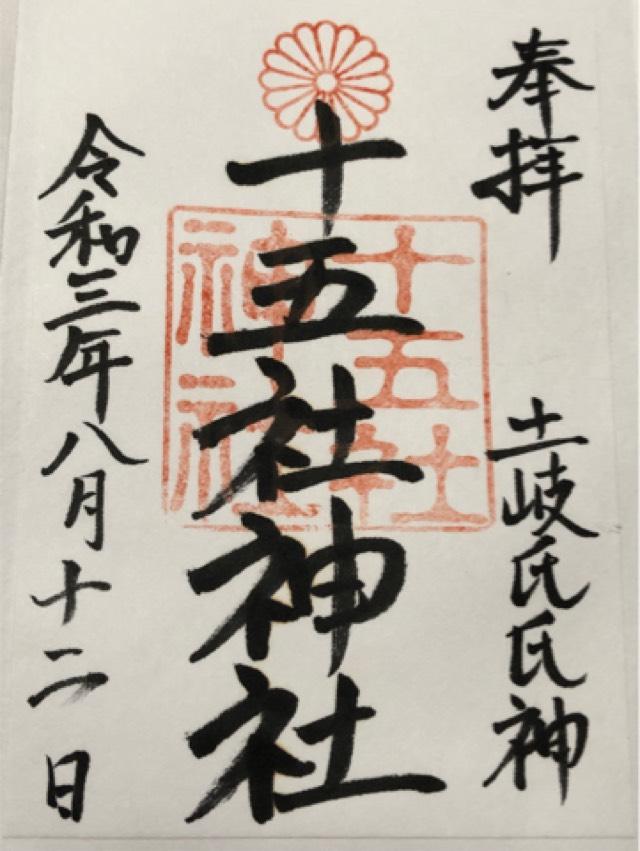 奉拝
土岐氏氏神
十五社神社
十五社神社
令和三年八月十二日